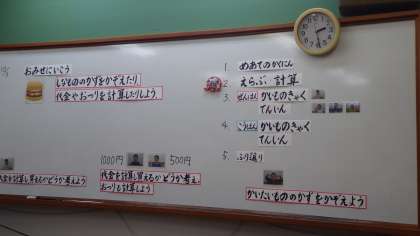 おみせにいこう
しなもののかずをかぞえたり
代金やおつりを計算したりしよう
1000円
500円
代金を計算し買えるかどうか考え、
おつりも計算しよう
代金を計算し、買えるかどうか考えよう
1. めあてのかくにん
2. えらぶ、計算
3. ぜんはん かいものきゃく
てんいん
4. こうはん かいものきゃく
てんいん
5. ふり返り
かいたいもののかずをかぞえよう